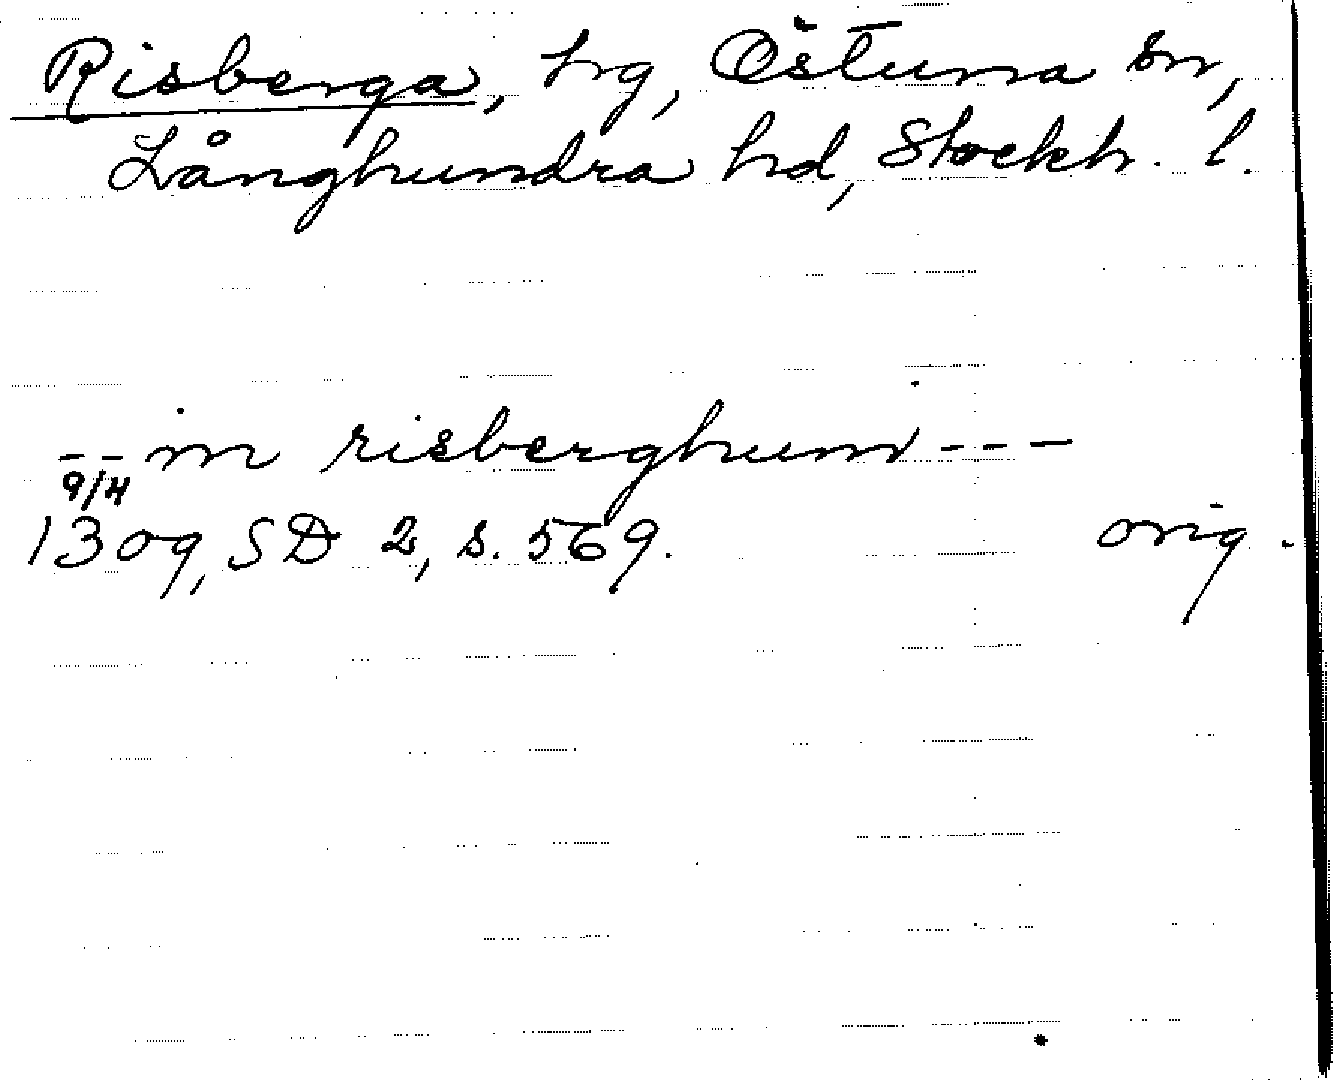 Risberga, hg, Östuna sn,
Långhundra hd, Stockh. l.
-- in risberghum ---
9/4
1309, SD 2, s. 569. orig.